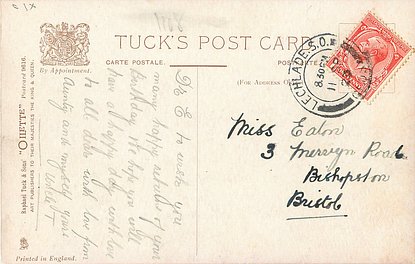 1116
TUCK'S POST CARD
By Appointment.
CARTE POSTALE.
(For Address On
LECHLADE. S.O.
8.30
11
Raphael Tuck & Sons' "OILETTE" Postcard 9616.
ART PUBLISHERS TO THEIR MAJESTIES THE KING & QUEEN.
Dr E to wish you
many happy returns of your
Birthday & hope you will
have a happy day with love
to all dears with love from
Aunty and myself yours
Printed in England.
Miss Eaton
3 Mervyn Road
Bishopston
Bristol